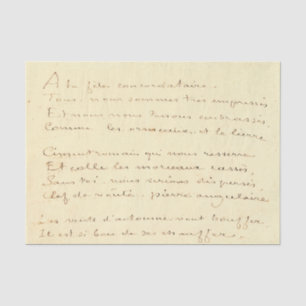 A la fête concordataire.
Tous, nous sommes très empressés
Et nous nous tenons embrassés
Comme les ormeaux et le lierre
Ciment romain qui nous resserre
Et colle les morceaux cassés,
Sans toi nous serions dispersés
Clef de voûte, pierre angulaire
Les nuits d'automne vont
Il est si bon de se chauffer.